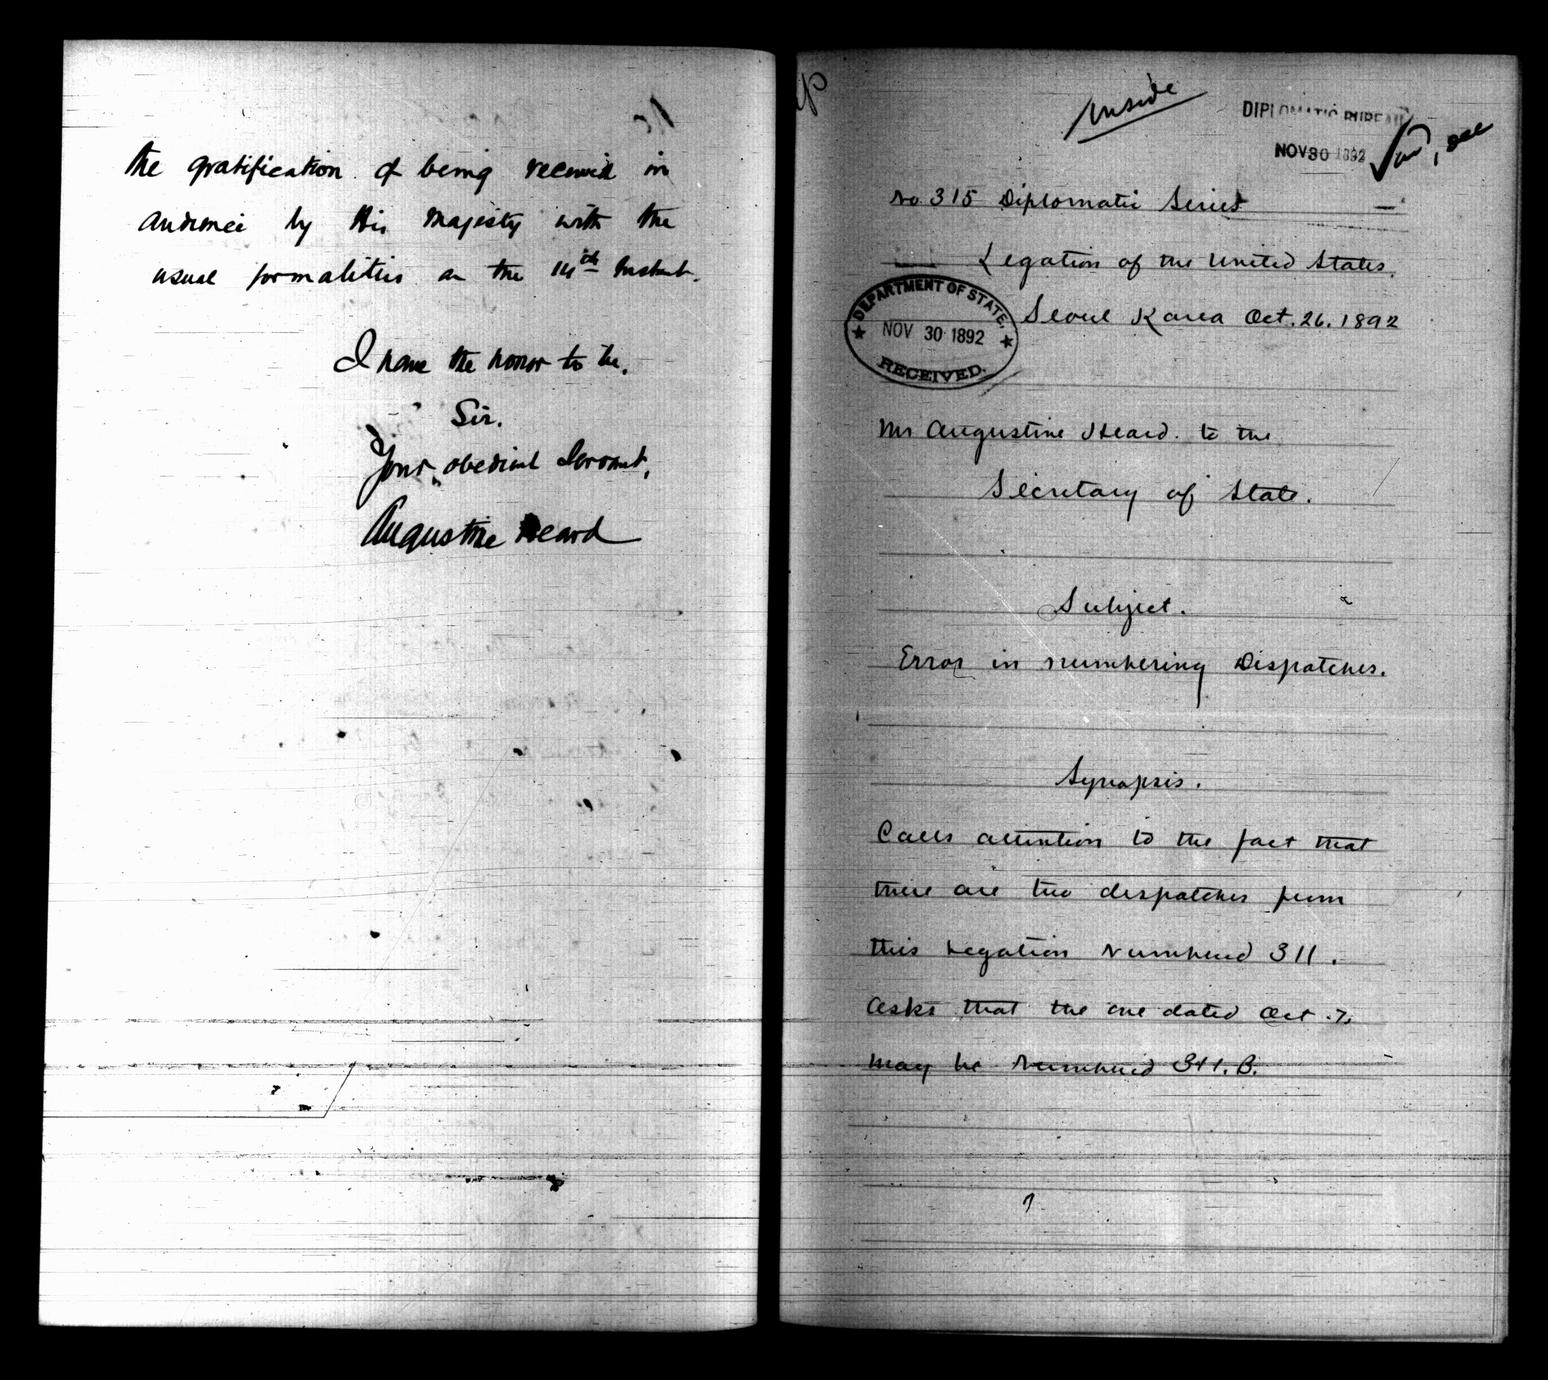 the gratification of being received in
audience by His Majesty with the
usual formalities on the 14th Instant.
I have the honor to be,
Sir.
Your obedient Servant,
Augustine Heard
Inside
DIPLOMATIC BUREAU
NOV 30 1892
No 315 Diplomatic Series
Legation of the United States.
Seoul Korea Oct. 26. 1892
DEPARTMENT OF STATE.
NOV 30 1892
RECEIVED.
Mr Augustine Heard. to the
Secretary of State.
Subject.
Error in numbering Dispatches.
Synopsis.
Calls attention to the fact that
there are two dispatches from
this Legation Numbered 311.
Asks that the one dated Oct. 7,
may be Numbered 311. B.